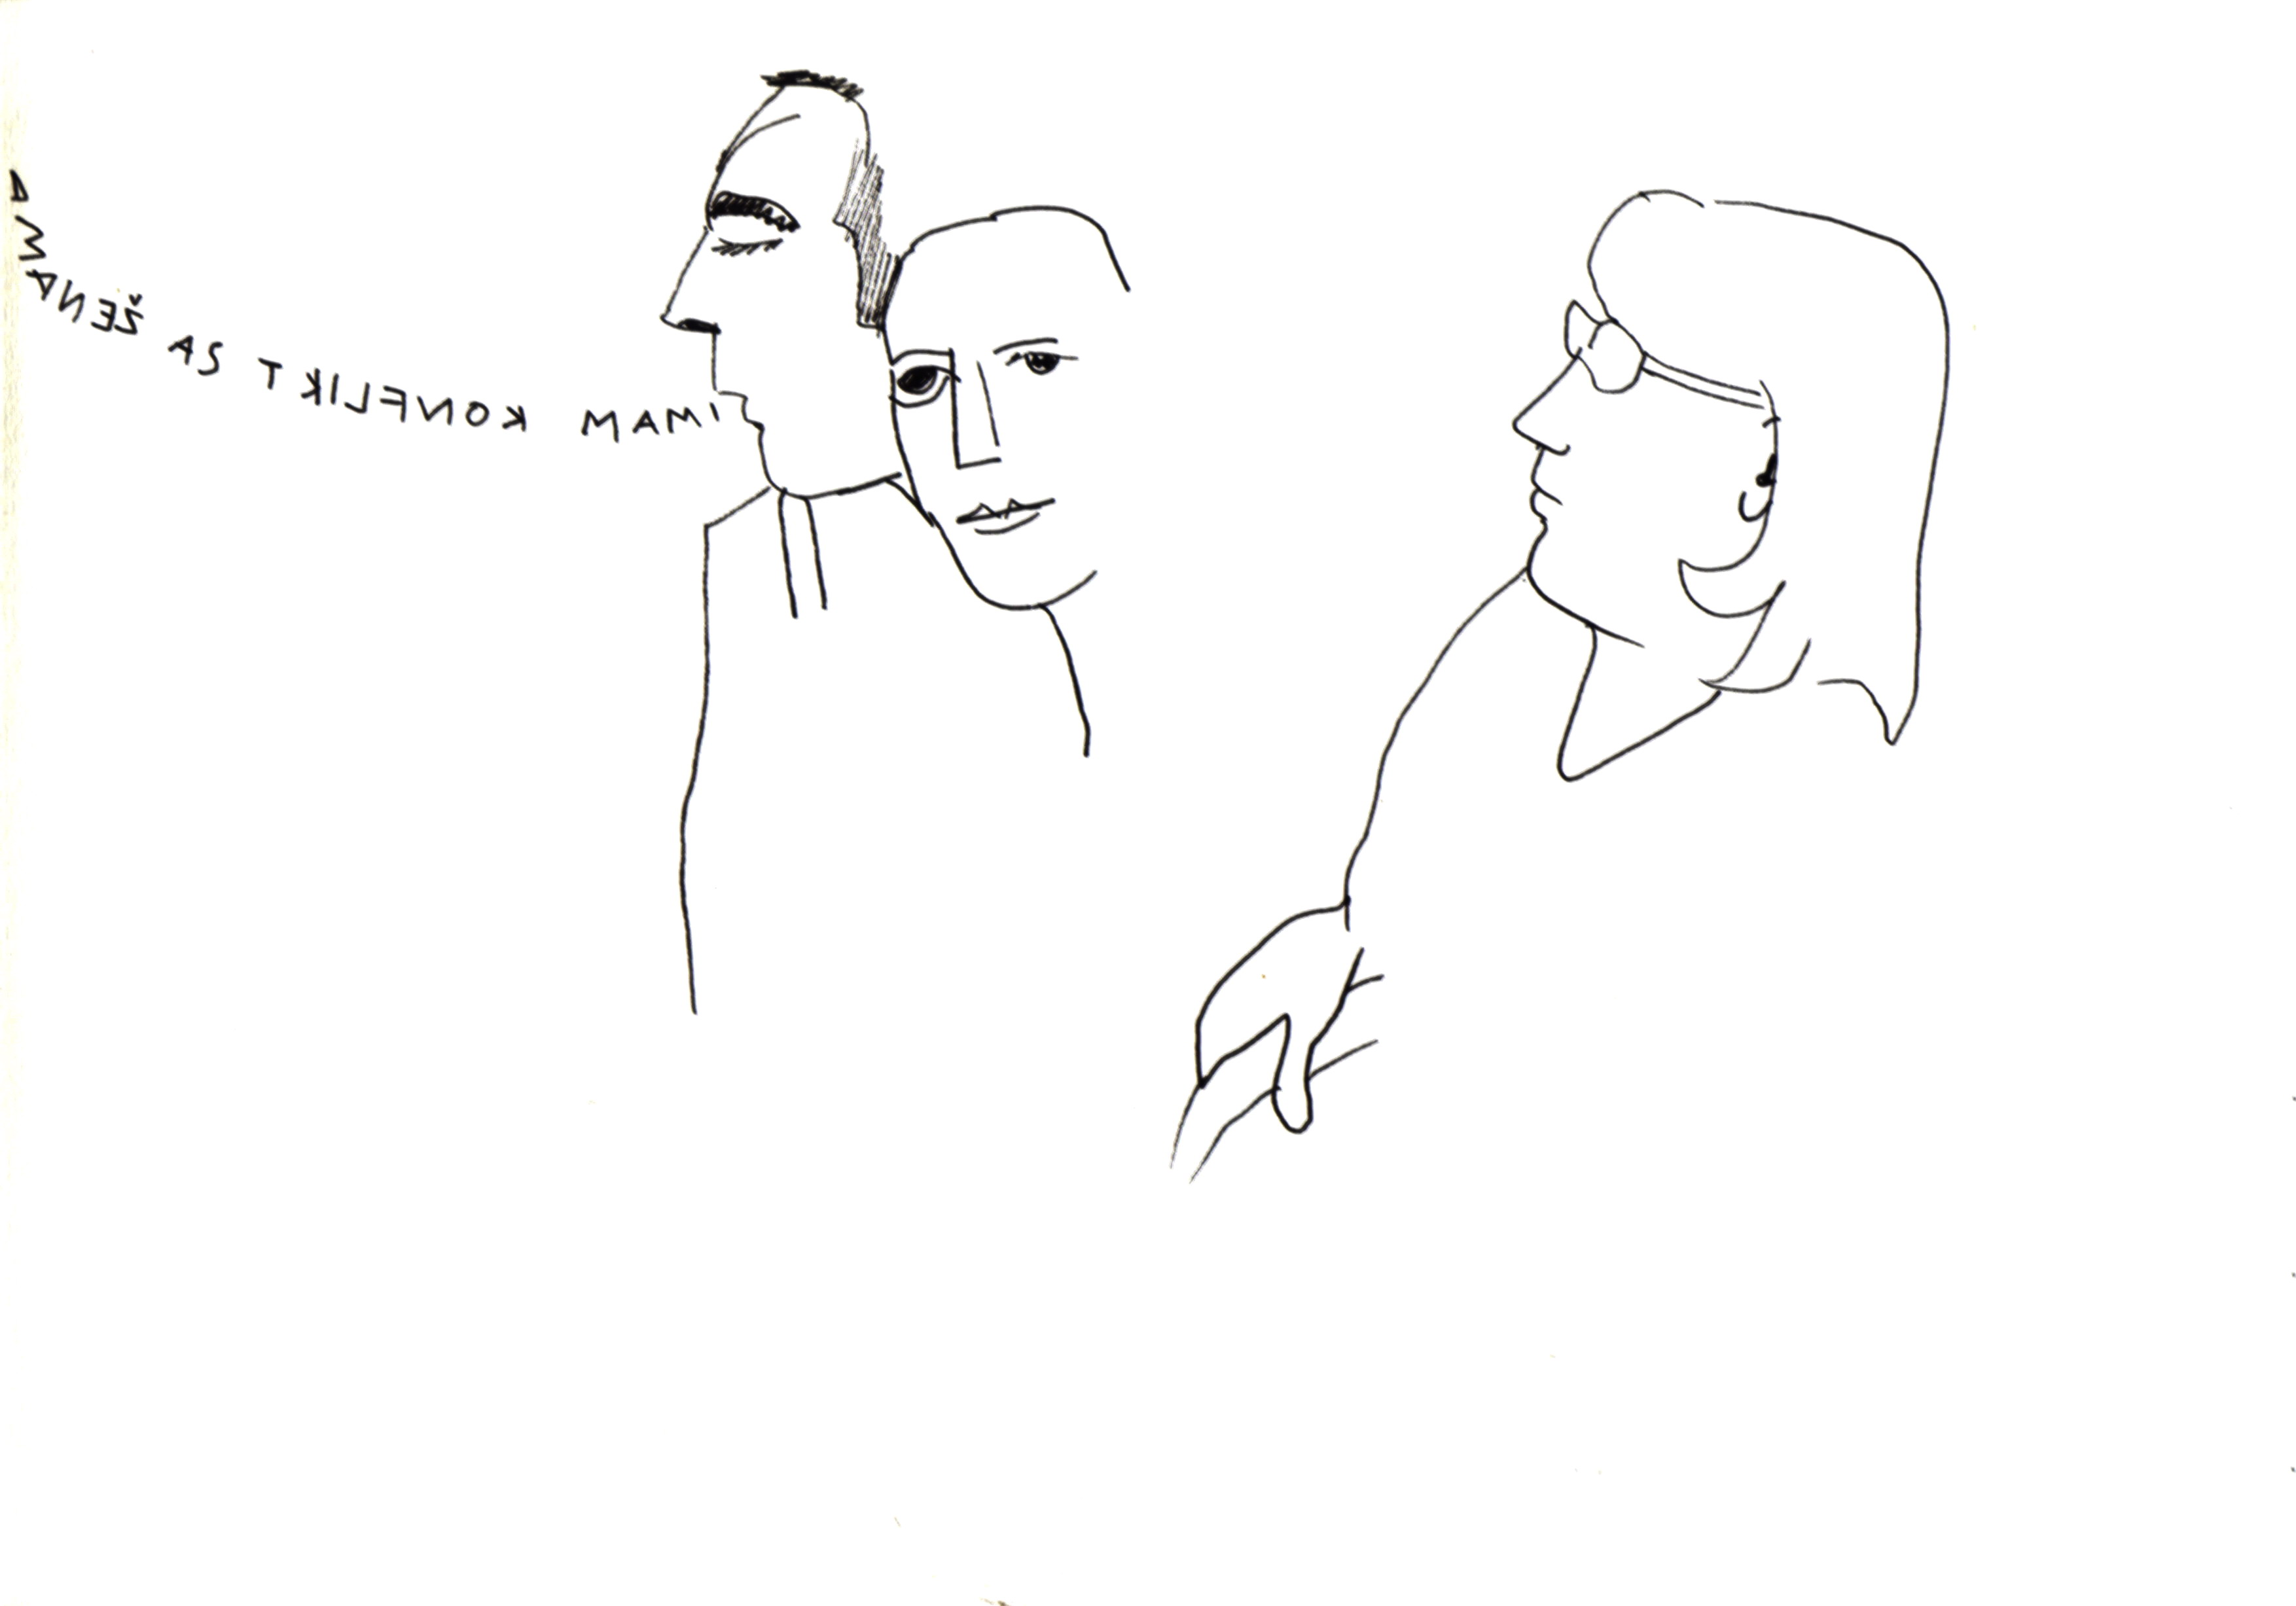 IMAM KONFLIKT SA ŽENAMA